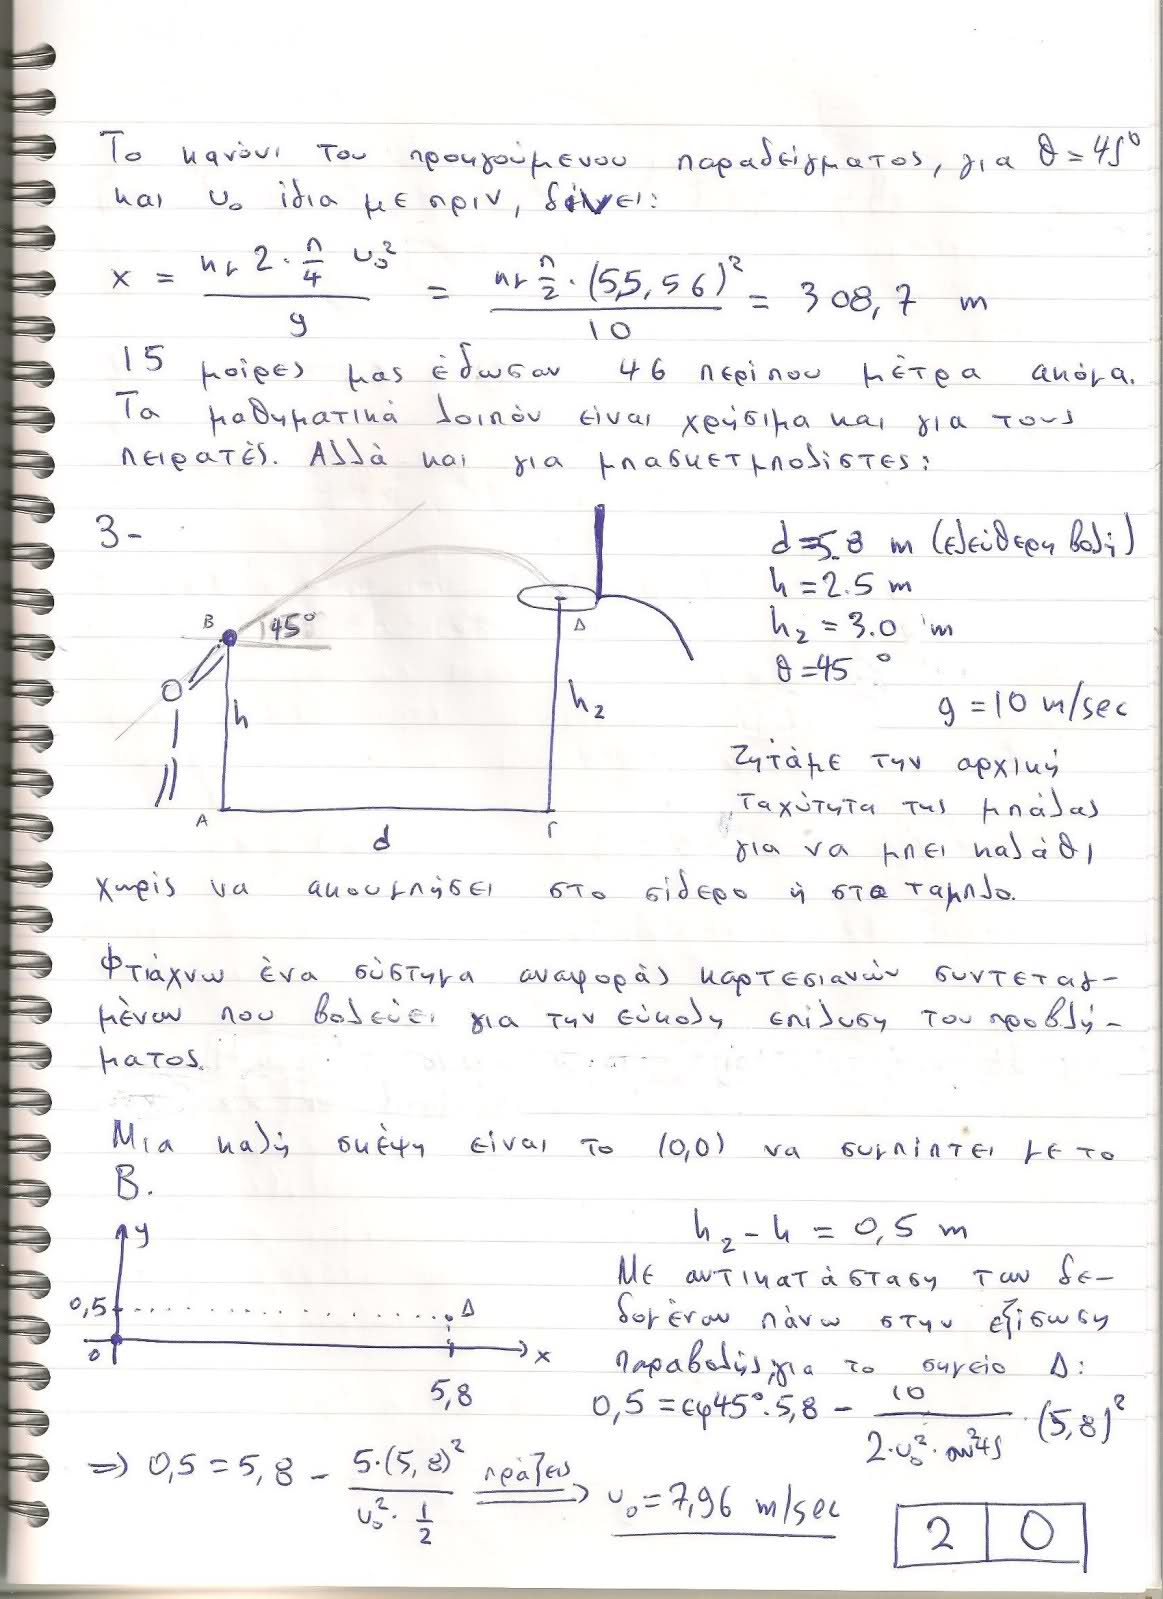 Το κανόνι του προηγούμενου παραδείγματος, για θ = 45°
και υ₀ ίδια με πριν, δίνει:
x = ημ 2·π/4 υ₀² / g = ημ π/2 · (55,56)² / 10 = 308,7 m
15 μοίρες μας έδωσαν 46 περίπου μέτρα ακόμα.
Τα μαθηματικά λοιπόν είναι χρήσιμα και για τους
πειρατές. Αλλά και για μπασκετμπολίστες:
3-
d=5.8 m (ελεύθερη βολή)
h = 2.5 m
h₂ = 3.0 m
θ = 45°
g = 10 m/sec
B
45°
Δ
h
h₂
A
d
Γ
Ζητάμε την αρχική
ταχύτητα της μπάλας
για να μπει καλάθι,
χωρίς να ακουμπήσει στο σίδερο ή στο ταμπλο.
Φτιάχνω ένα σύστημα αναφοράς καρτεσιανών συντεταγ-
μένων που βολεύει για την εύκολη επίλυση του προβλή-
ματος.
Μια καλή σκέψη είναι το (0,0) να συμπίπτει με το
B.
y
0,5
Δ
0
x
5,8
h₂ - h = 0,5 m
Με αντικατάσταση των δε-
δομένων πάνω στην εξίσωση
παραβολής, για το σημείο Δ:
0,5 = εφ45°·5,8 - 10 / 2·υ₀²·συν²45 · (5,8)²
⇒ 0,5 = 5,8 - 5·(5,8)² / υ₀²·1/2 πράξεις ⇒ υ₀ = 7,96 m/sec
2 0